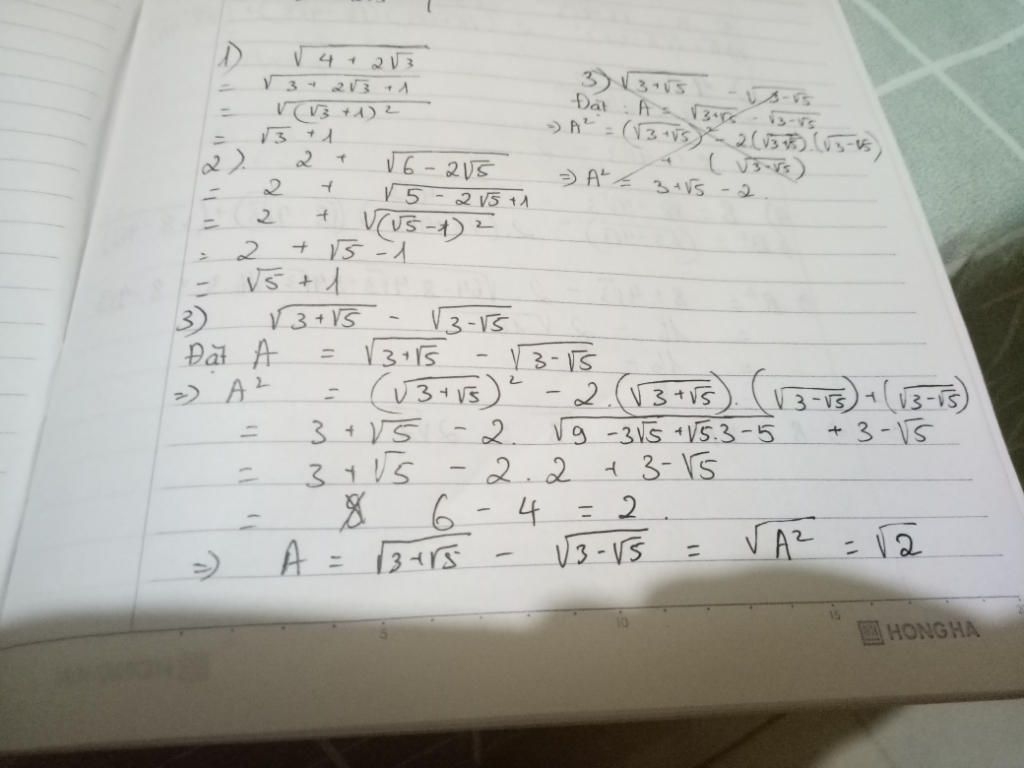 1) √(4 + 2√3)
= √(3 + 2√3 + 1)
= √((√3 + 1)²)
= √3 + 1
2). 2 + √(6 - 2√5)
= 2 + √(5 - 2√5 + 1)
= 2 + √((√5 - 1)²)
= 2 + √5 - 1
= √5 + 1
3) √(3 + √5) - √(3 - √5)
Đặt A = √(3 + √5) - √(3 - √5)
=> A² = (√(3 + √5))² - 2.(√(3 + √5)).(√(3 - √5)) + (√(3 - √5))
= 3 + √5 - 2. √(9 - 3√5 + √5.3 - 5) + 3 - √5
= 3 + √5 - 2.2 + 3 - √5
= 6 - 4 = 2.
=> A = √(3 + √5) - √(3 - √5) = √(A²) = √2
3) √(3 + √5) - √(3 - √5)
Đặt : A = √(3 + √5) - √(3 - √5)
=> A² = (√(3 + √5))² - 2(√(3 + √5)).(√(3 - √5))
+ (√(3 - √5))
=> A² = 3 + √5 - 2.
5 10 15
HONG HA